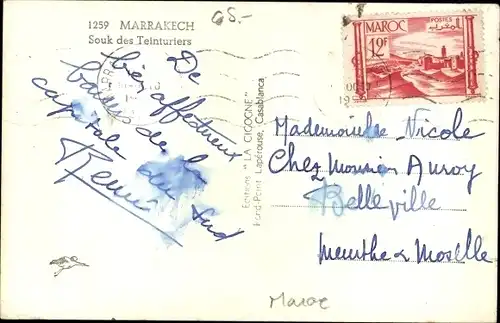 1259 MARRAKECH
Souk des Teinturiers
65-
De
bien affectueux
baisers de la
capitale du Sud
Editions "LA CIGOGNE"
Rond-Point Lapérouse, Casablanca
MAROC
POSTES
12F
Mademoiselle Nicole
Chez Monsieur Auroy
Belleville
Meurthe & Moselle
Maroc